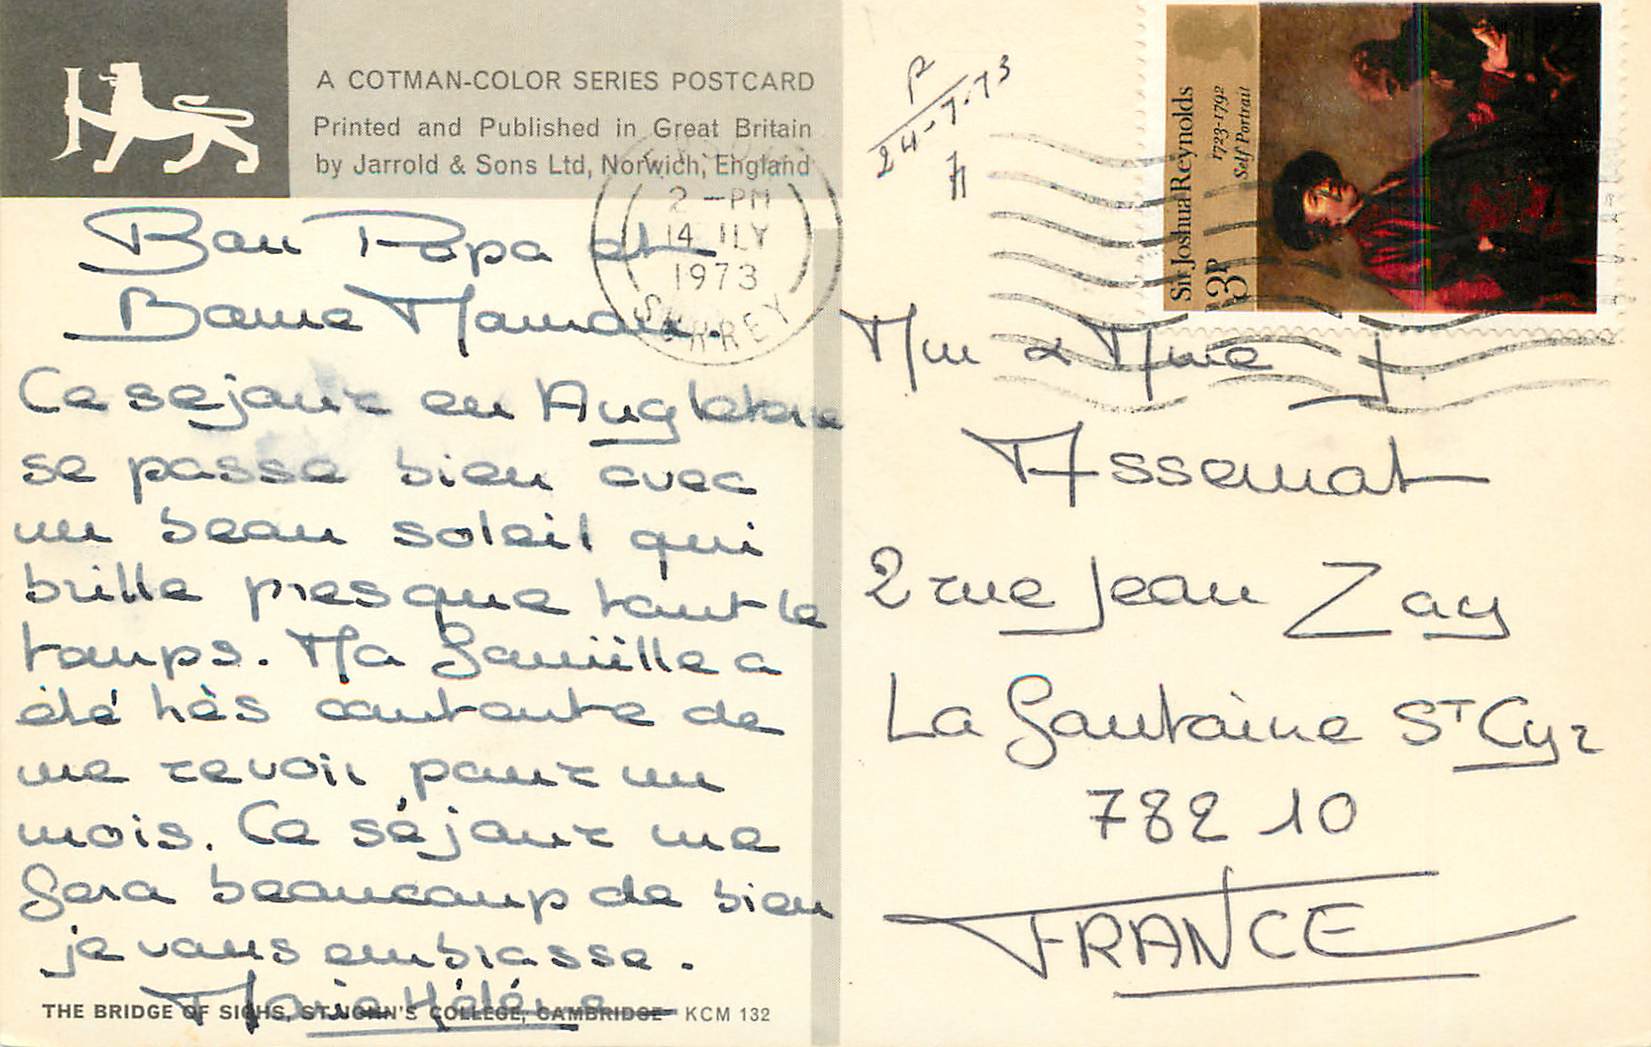 A COTMAN-COLOR SERIES POSTCARD
Printed and Published in Great Britain
by Jarrold & Sons Ltd, Norwich, England
Bon Papa et
Bonne Maman.
Ce sejour en Angleterre
se passe bien avec
un beau soleil qui
brille presque tout le
temps. Ma famille a
été très contente de
me revoir pour un
mois. Ce séjour me
fera beaucoup de bien
je vous embrasse.
Marie Hélène
THE BRIDGE OF SIGHS, ST. JOHN'S COLLEGE, CAMBRIDGE KCM 132
2-PM
14 JLY
1973
SURREY
R
24-7-73
Sir Joshua Reynolds
1723-1792
Self Portrait
3P
Mm & Mme J.
Assemat
2 rue Jean Zay
La Fontaine ST Cyr
78210
FRANCE